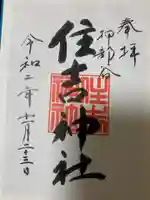 奉拝
押部谷
住吉神社
令和二年十一月二十三日